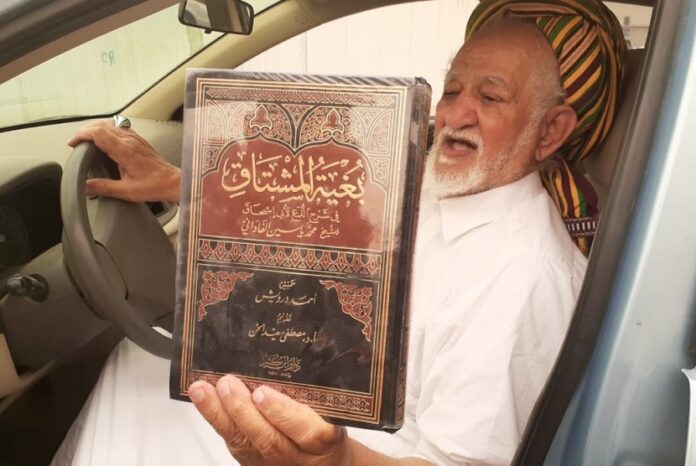 بغية المشتاق
في شرح اللمع لأبي إسحاق
للشيخ محمد ياسين الفاداني
تحقيق
أحمد درويش
تقديم
أ.د. مصطفى سعيد الخن
دار ابن كثير